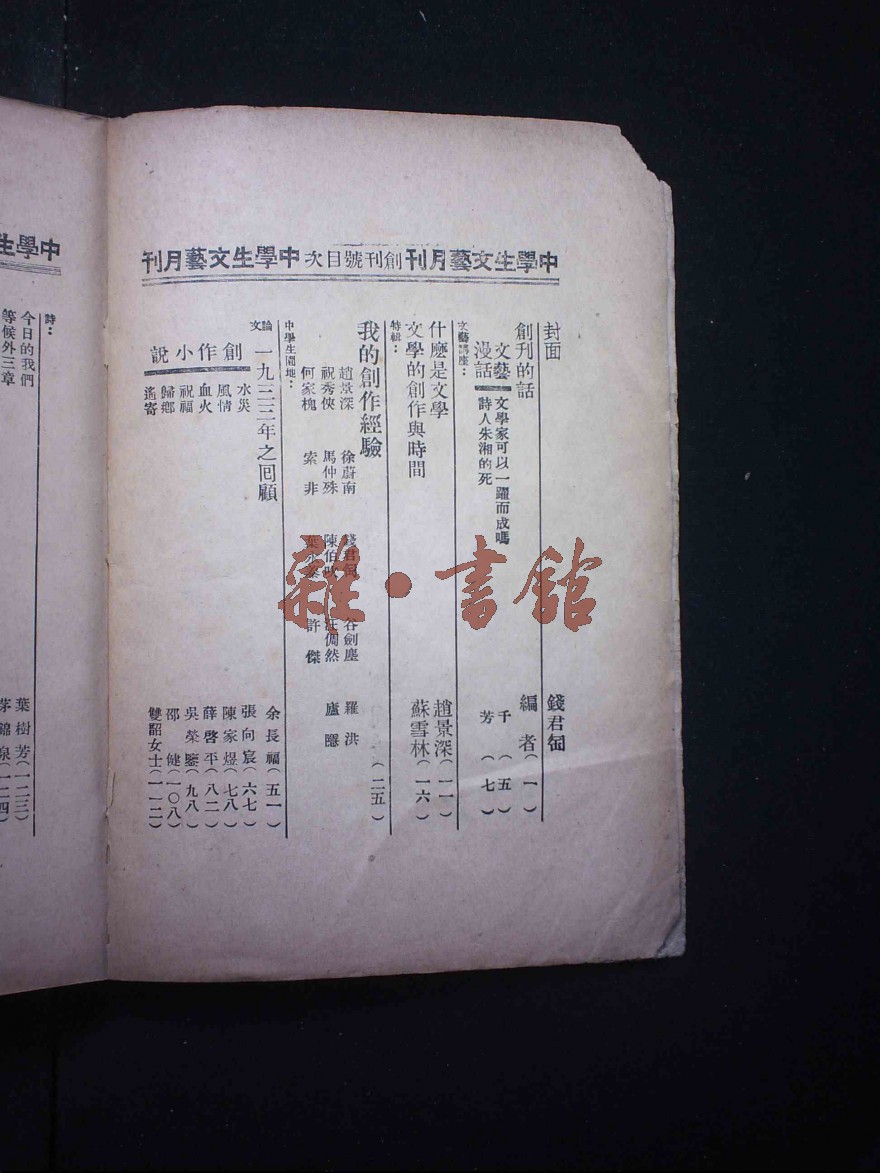 中學生文藝月刊創刊號目次中學生文藝月刊
封面 錢君匋
創刊的話 編者(一)
文藝漫話
文學家可以一躍而成嗎 千(五)
詩人朱湘的死 芳(七)
文藝講座：
什麽是文學 趙景深(一一)
文學的創作與時間 蘇雪林(一六)
特輯：
我的創作經驗 (二五)
趙景深 徐蔚南 錢君匋 谷劍塵 羅洪
祝秀俠 馬仲殊 陳伯吹 汪倜然 盧隱
何家槐 索非 葉永蓁 許傑
中學生園地：
論文 一九三三年之囘顧 余長福(五一)
創作小說
水災 張向宸(六七)
風情 陳家煜(七八)
血火 薛啓平(八二)
祝福 吳榮鑒(九八)
歸鄉 邵健(一〇八)
遙寄 雙韶女士(一一二)
中學生
詩：
今日的我們 葉樹芳(一二三)
等候外三章 茅錦泉(一二四)
雜·書館